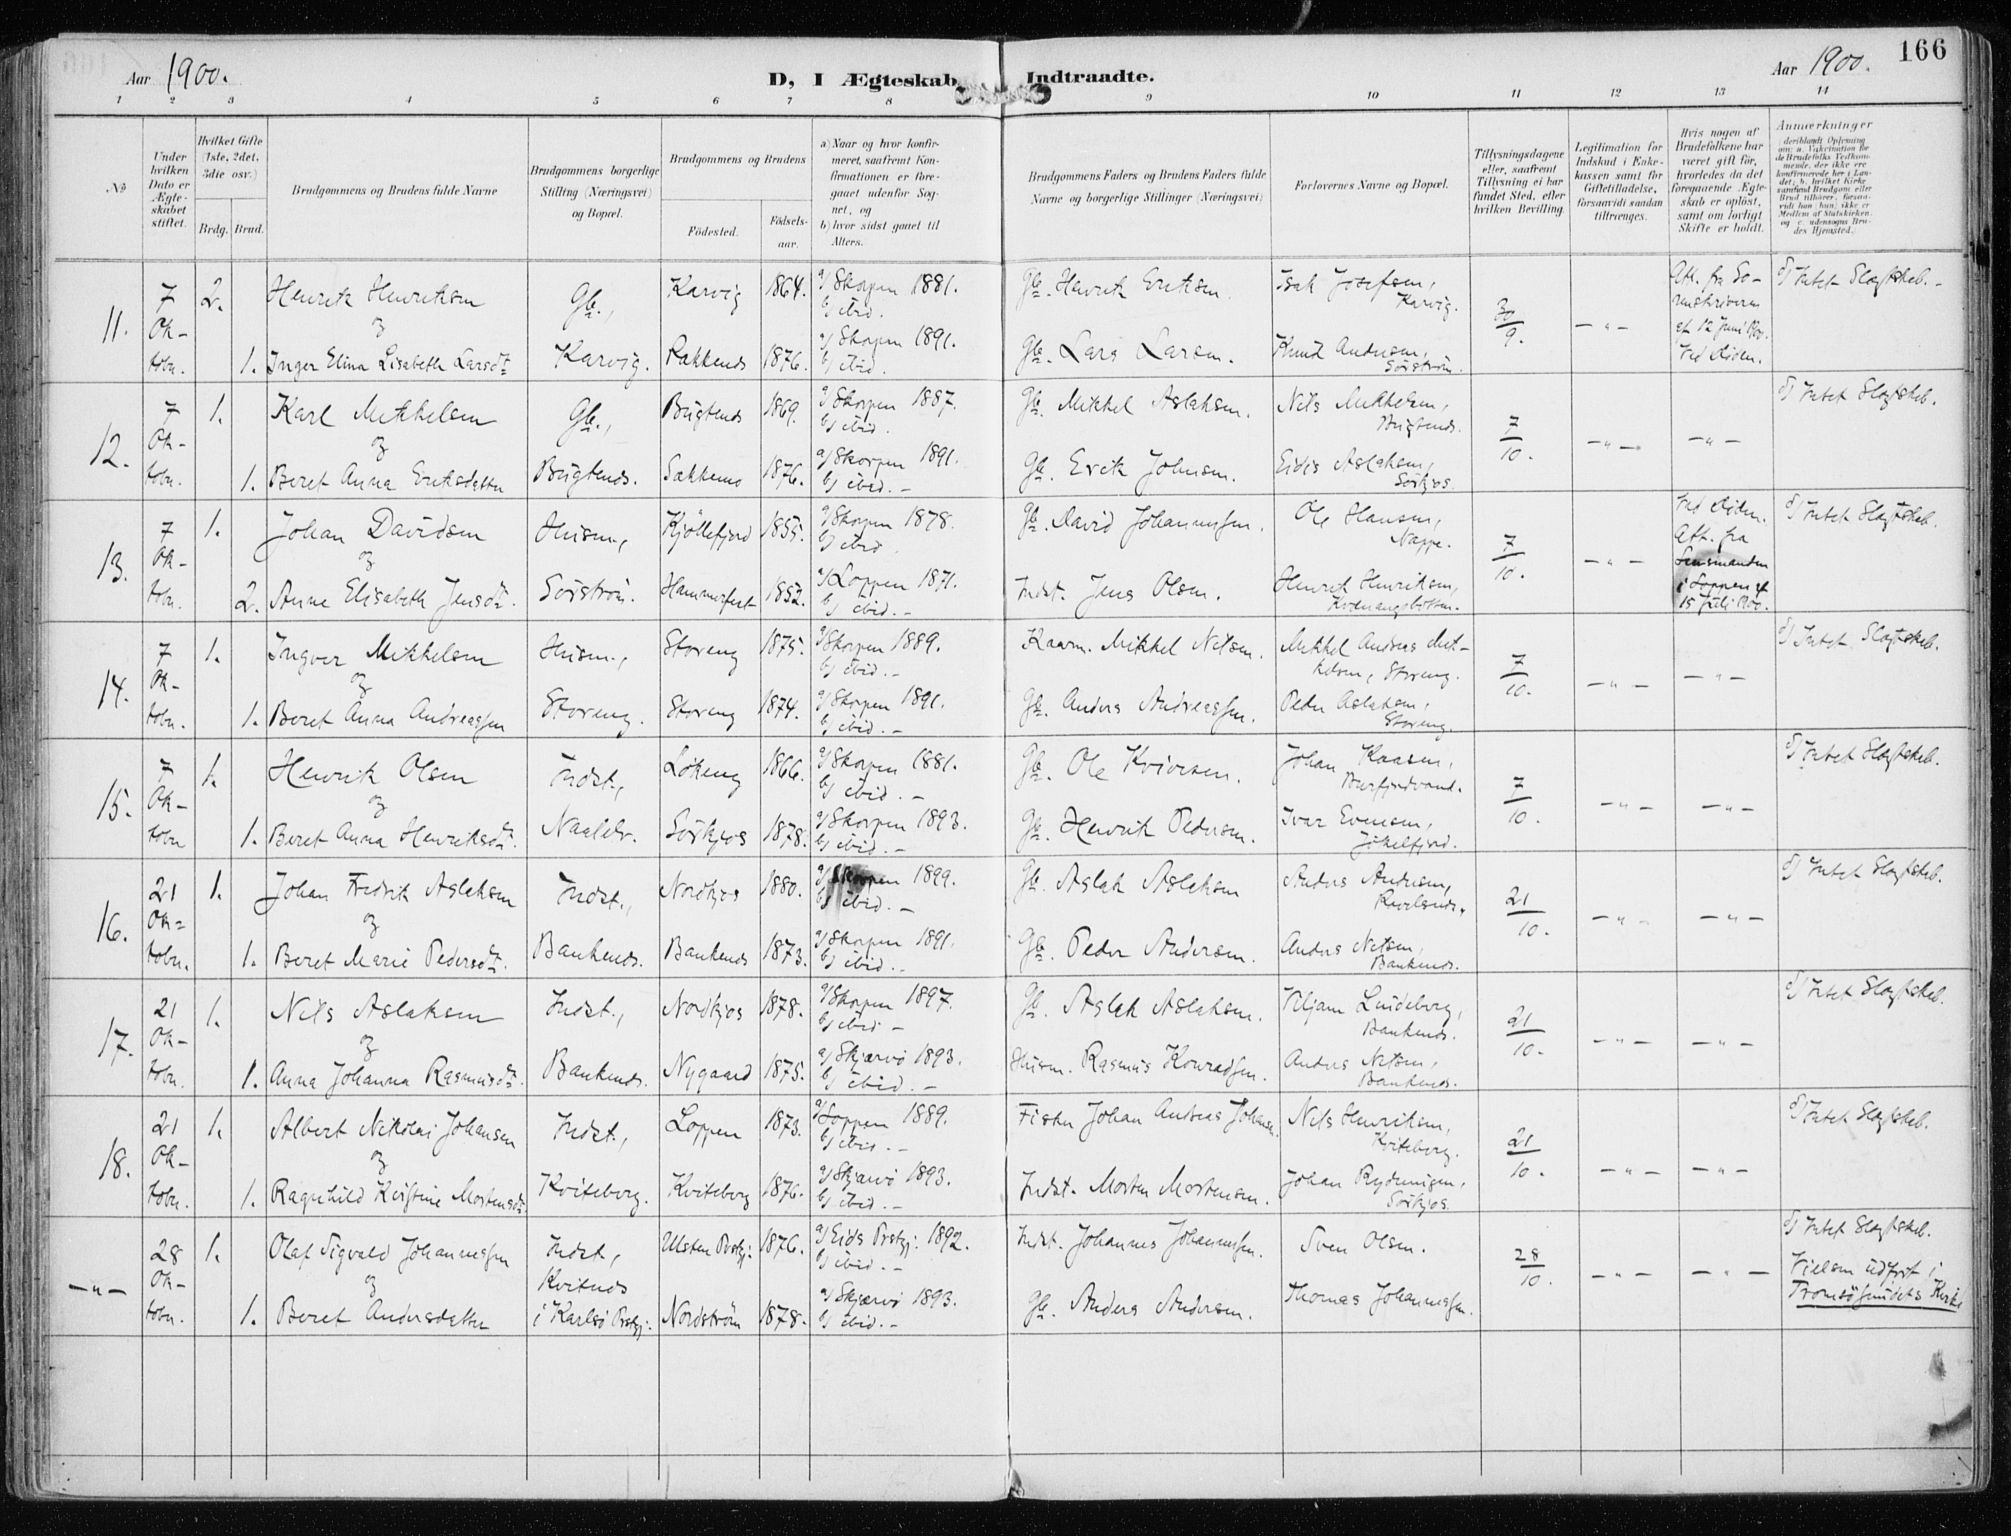 166
Aar 1900.
D, I Ægteskab
Indtraadte.
Aar 1900.
1 2 3 4 5 6 7 8 9 10 11 12 13 14
No
Under hvilken Dato er Ægteskabet stiftet.
Hvilket Gifte (1ste, 2det, 3die osv.)
Brdg. Brud.
Brudgommens og Brudens fulde Navne
Brudgommens borgerlige Stilling (Næringsvei) og Bopæl.
Brudgommens og Brudens
Fødested.
Fødsels-aar.
a) Naar og hvor konfirmeret, saafremt Konfirmationen er foregaaet udenfor Sognet, og
b) hvor sidst gaaet til Alters.
Brudgommens Faders og Brudens Faders fulde Navne og borgerlige Stillinger (Næringsvei)
Forlovernes Navne og Bopæl.
Tillysningsdagene eller, saafremt Tillysning ei har fundet Sted, efter hvilken Bevilling.
Legitimation for Indskud i Enkekassen samt for Giftetilladelse, forsaavidt saadan tiltrænges.
Hvis nogen af Brudefolkene har været gift før, hvorledes da det foregaaende Ægteskab er opløst, samt om lovligt Skifte er holdt.
Anmærkninger
(deriblandt Oplysning om: a. Vakcination for de Brudefolks Vedkommende, der ikke ere konfirmerede her i Landet; b. hvilket Kirkesamfund Brudgom eller Brud tilhører, forsaavidt han (hun) ikke er Medlem af Statskirken, og c. udensogns Brudes Hjemsted.)
11. 7 Ok-tobr. 2. Henrik Henriksen Gb., Karvig 1864. a) Skorpen 1881. b) ibid. Gb. Henrik Eriksen. Isak Josefsen, Karvig. 30/9. — " — Att. fra So-renskriveren af 12 Juni 1900. Ved Døden. c) Intet Slægtskab.
og
1. Inger Elina Lisabeth Larsdtr. Karvig. Rakkenes 1876. a) Skorpen 1891. b) ibid. Gb. Lars Larsen. Knud Andersen, Sørstrøm.
12. 7 Ok-tobr. 1. Karl Mikkelsen Gb., Bugtenes 1869. a) Skorpen 1887. b) ibid. Gb. Mikkel Aslaksen. Nils Mikkelsen, Bugtenes. 7/10. — " — — " — c) Intet Slægtskab.
og
1. Beret Anna Eriksdatter Bugtenes. Sakkemo 1876. a) Skorpen 1891. b) ibid. — Gb. Erik Johnsen. Aslaksen, Sørkjos.
13. 7 Ok-tobr. 1. Johan Davidsen Husm., Kjøllefjord 1855. a) Skorpen 1878. b) ibid. Gb. David Johannessen. Ole Hansen, Nappe. 7/10. — " — Ved Døden. Att. fra Lensmanden i Loppen af 15 Juli 1900. c) Intet Slægtskab.
og
2. Anne Elisabeth Jensdtr. Sørstrøm. Hammerfest 1852. a) Loppen 1871. b) ibid. — Indst. Jens Olsen. Henrik Henriksen, Kvænangsbotten.
14. 7 Ok-tobr. 1. Ingver Mikkelsen Husm., Storeng 1875. a) Skorpen 1889. b) ibid. — Kaarm. Mikkel Nilsen. Mikkel Andreas Mik-kelsen, Storeng. 7/10. — " — — " — c) Intet Slægtskab.
og
1. Beret Anna Andreassen Storeng. Storeng 1874. a) Skorpen 1891. b) ibid. — Gb. Anders Andreassen. Peder Aslaksen, Storeng.
15. 7 Ok-tobr 1. Henrik Olsen Indst., Løkeng 1866. a) Skorpen 1881. b) ibid. — Gb. Ole Iversen. Johan Kaasen, Burfjordvand. 7/10. — " — — " — c) Intet Slægtskab.
og
1. Beret Anna Henriksdtr. Sørkjos 1878. a) Skorpen 1893. b) ibid. — Gb. Henrik Pedersen. Ivar Evensen, Jøkelfjord.
16. 21 Ok-tobr. 1. Johan Fredrik Aslaksen Indst., Nordkjos 1880. a) Skorpen 1899. b) ibid. — Gb. Aslak Aslaksen Anders Andersen, 21/10. — " — — " — c) Intet Slægtskab.
og
1. Beret Marie Pedersdtr. Bankenes. Bankenes 1873. a) Skorpen 1891. b) ibid. — Gb. Peder Andersen. Anders Nilsen, Bankenes.
17. 21 Ok-tobr. 1. Nils Aslaksen Indst., Nordkjos 1878. a) Skorpen 1897. b) ibid. — Gb. Aslak Aslaksen. Viljam Lindeborg, Bankenes. 21/10. — " — — " — c) Intet Slægtskab.
og
1. Anna Johanna Rasmusdtr. Bankenes. Nygaard 1875. a) Skjærvø 1893. b) ibid. — Husm. Rasmus Konradsen. Anders Nilsen, Bankenes.
18. 21 Ok-tobr. 1. Albert Nikolai Johansen Indst., Loppen 1873. a) Loppen 1889. b) ibid. — Fisker Johan Andreas Johansen. Nils Henriksen, Kviteberg. 21/10. — " — — " — c) Intet Slægtskab.
og
1. Ragnhild Kristine Mortensdtr. Kviteberg. Kviteberg 1876. a) Skjærvø 1893. b) ibid. — Indst. Morten Mortensen. Johan Rydningen, Sørkjos.
— " — 28 Ok-tobr. 1. Olaf Sigvald Johannessen Indst., Kvitnes i Karlsø Prstgj. Ulsten Prstgj. 1876. a) Eids Prstgj. 1892. b) ibid. — Indst. Johannes Johannessen. Sven Olsen. 28/10. — " — — " — c) Intet Slægtskab. Vielsen udført i Tromsøsundets Kirke
og
1. Beret Andersdatter Nordstrøm 1878. a) Skjærvø 1893. b) ibid. — Gb. Anders Andersen. Thomas Johannessen.